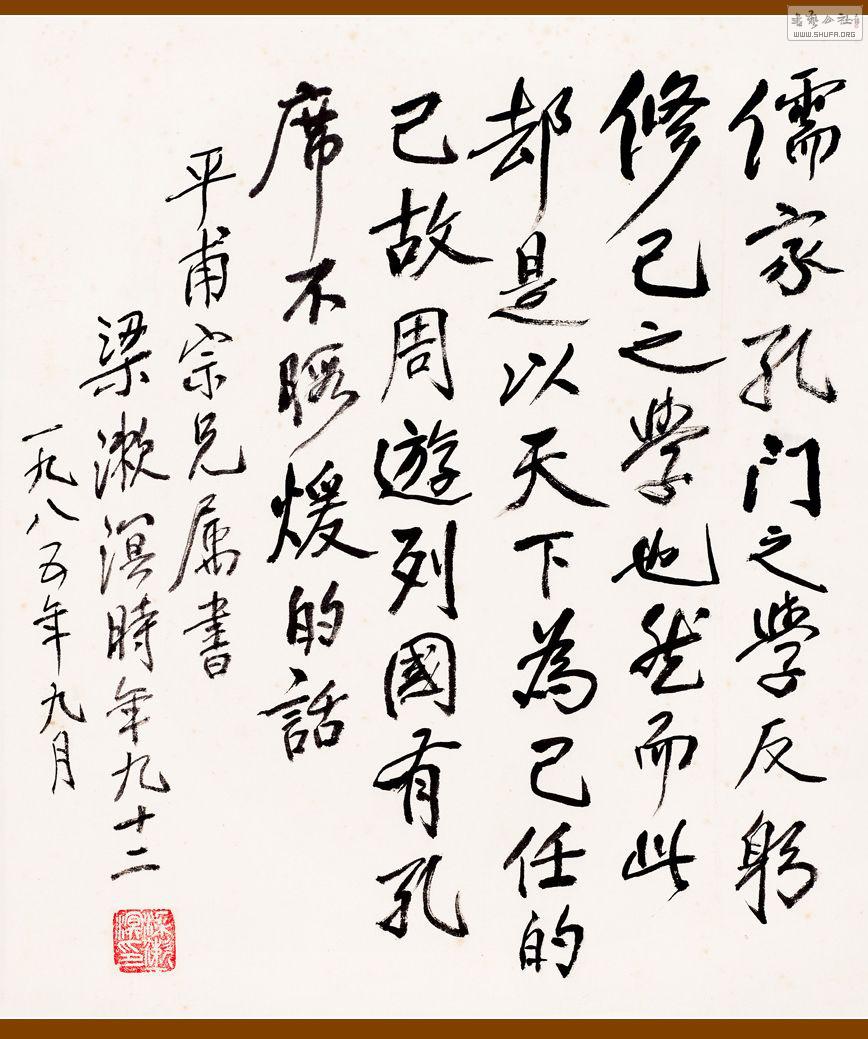 儒家孔门之學反躬
修己之學也然而此
却是以天下為己任的
己故周遊列國有孔
席不暇煖的話
平甫宗兄属書
梁漱溟時年九十二
一九八五年九月
梁漱溟印
书艺公社
WWW.SHUFA.ORG